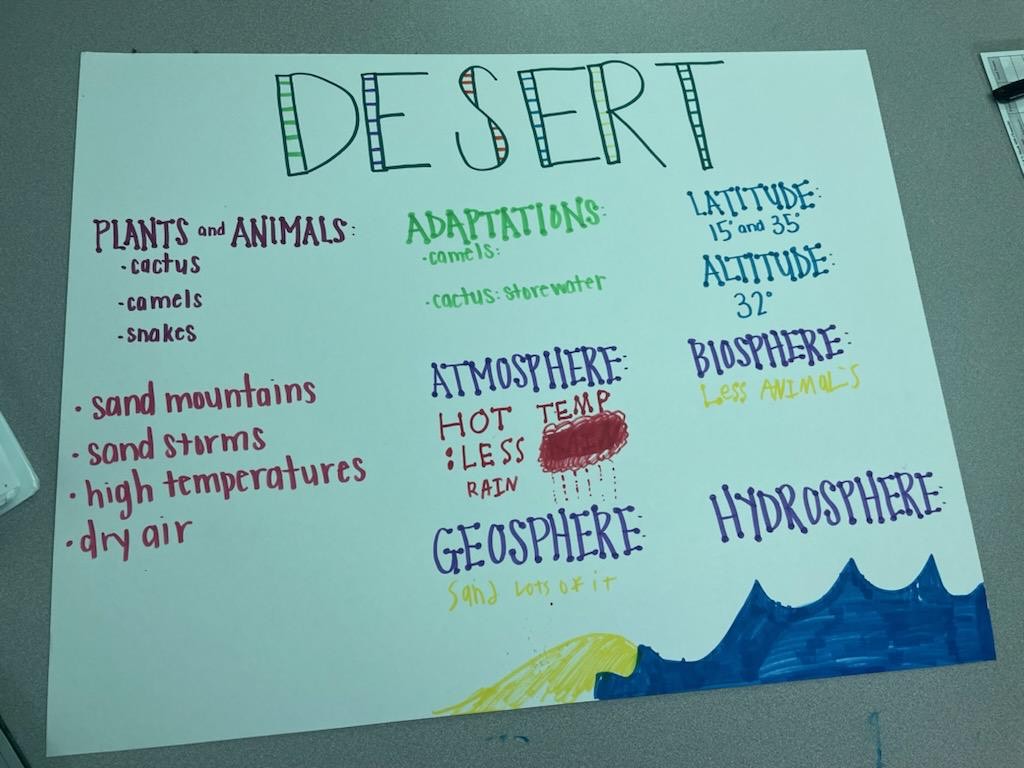 DESERT
PLANTS and ANIMALS:
• cactus
• camels
• snakes
• sand mountains
• sand storms
• high temperatures
• dry air
ADAPTATIONS:
• camels:
• cactus: store water
ATMOSPHERE:
HOT TEMP
: LESS
RAIN
GEOSPHERE:
Sand Lots of it
LATITUDE:
15° and 35°
ALTITUDE:
32°
BIOSPHERE:
Less ANIMAL'S
HYDROSPHERE: